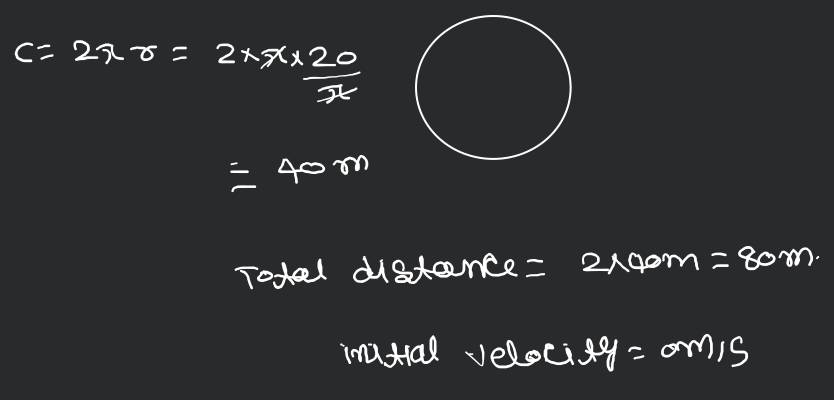 C = 2πr = 2×π×20/π
= 40 m
Total distance = 2×40m = 80m.
initial velocity = 0m/s